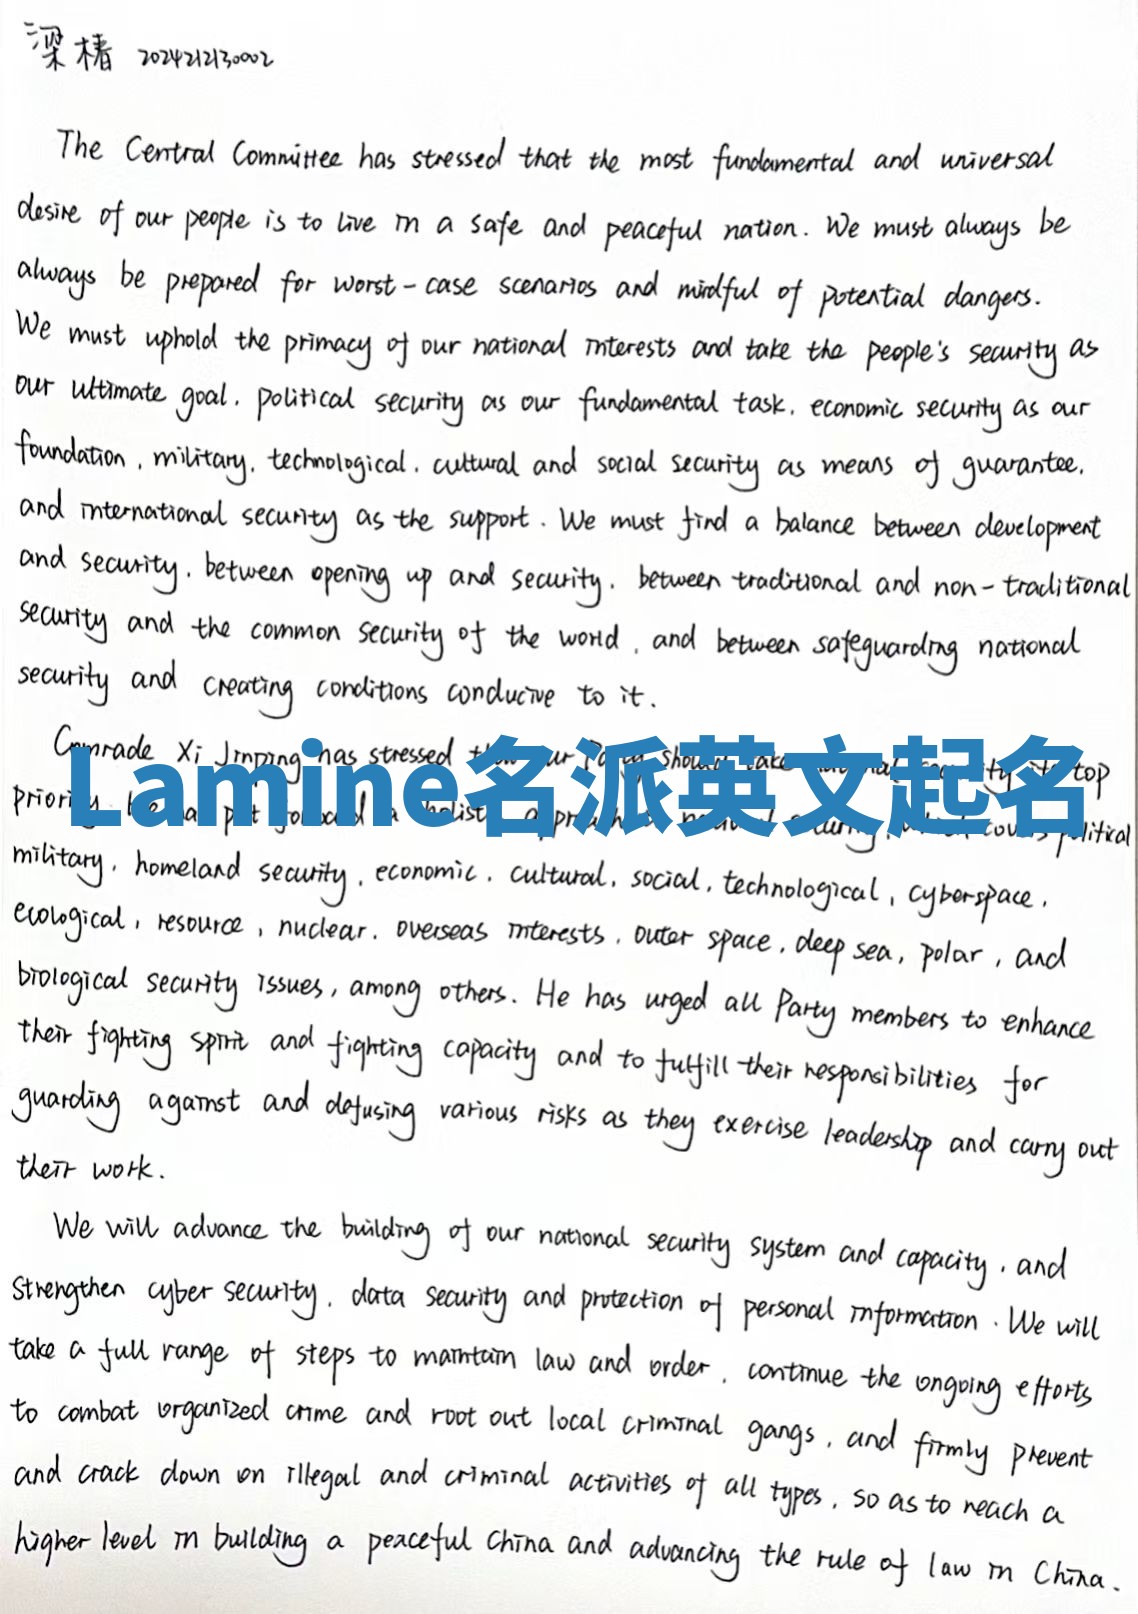 梁椿 2024212130002
The Central Committee has stressed that the most fundamental and universal
desire of our people is to live in a safe and peaceful nation. We must always be
always be prepared for worst-case scenarios and mindful of potential dangers.
We must uphold the primacy of our national interests and take the people's security as
our ultimate goal, political security as our fundamental task, economic security as our
foundation, military, technological, cultural and social security as means of guarantee,
and international security as the support. We must find a balance between development
and security, between opening up and security, between traditional and non-traditional
security and the common security of the world, and between safeguarding national
security and creating conditions conducive to it.
Comrade Xi Jinping has stressed our Party should take top
Lamine名派英文起名
priority. covers political
military, homeland security, economic, cultural, social, technological, cyberspace,
ecological, resource, nuclear, overseas interests, outer space, deep sea, polar, and
biological security issues, among others. He has urged all Party members to enhance
their fighting spirit and fighting capacity and to fulfill their responsibilities for
guarding against and defusing various risks as they exercise leadership and carry out
their work.
We will advance the building of our national security system and capacity, and
strengthen cyber security, data security and protection of personal information. We will
take a full range of steps to maintain law and order, continue the ongoing efforts
to combat organized crime and root out local criminal gangs, and firmly prevent
and crack down on illegal and criminal activities of all types, so as to reach a
higher level in building a peaceful China and advancing the rule of law in China.